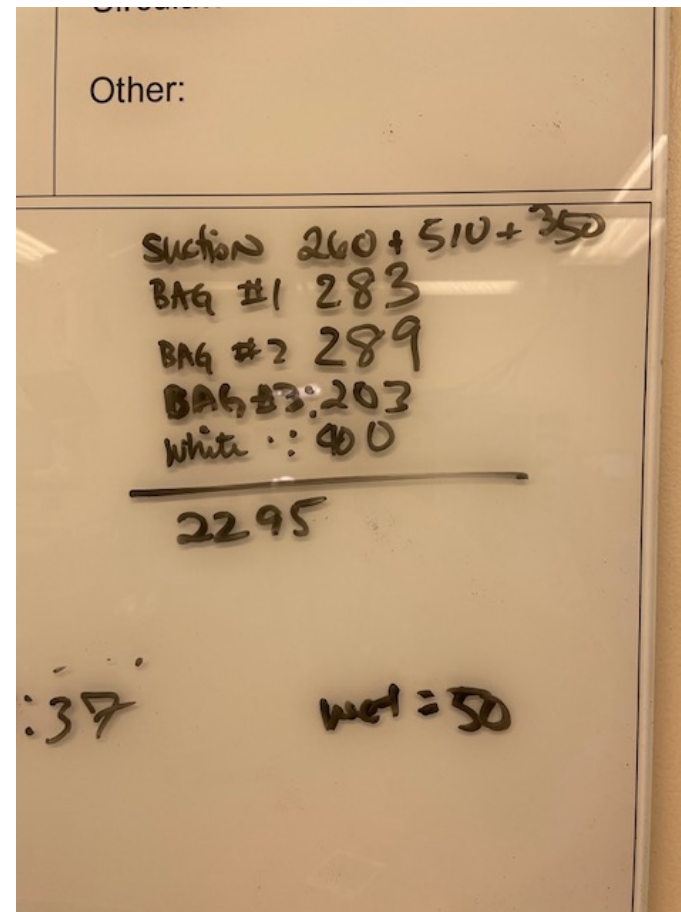 Other:
suction 260 + 510 + 350
BAG #1 283
BAG #2 289
BAG #3: 203
White :: 400
2295
:37
= 50